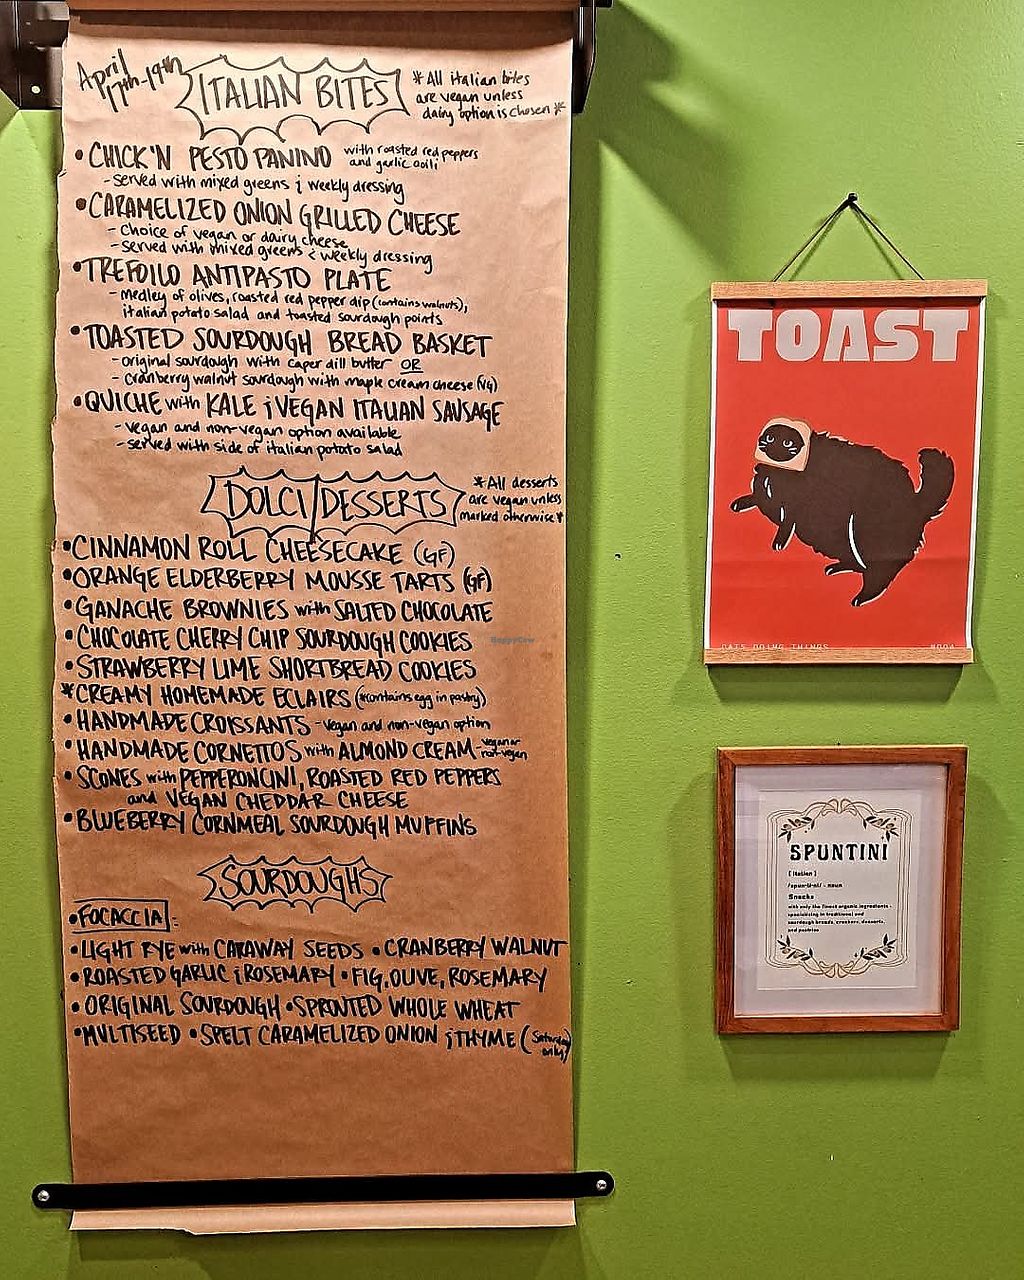 April
17th-19th
ITALIAN BITES
*All italian bites
are vegan unless
dairy option is chosen*
•CHICK'N PESTO PANINO with roasted red peppers
and garlic aoili
-served with mixed greens & weekly dressing
•CARAMELIZED ONION GRILLED CHEESE
- Choice of vegan or dairy cheese
- served with mixed greens & weekly dressing
•TREFOILO ANTIPASTO PLATE
-Medley of olives, roasted red pepper dip (contains walnuts),
italian potato salad and toasted sourdough points
•TOASTED SOURDOUGH BREAD BASKET
-original sourdough with caper dill butter OR
- Cranberry walnut sourdough with maple cream cheese (VG)
•QUICHE with KALE & VEGAN ITALIAN SAUSAGE
-vegan and non-vegan option available
-served with side of italian potato salad
DOLCI/DESSERTS
*All desserts
are vegan unless
marked otherwise*
•CINNAMON ROLL CHEESECAKE (GF)
•ORANGE ELDERBERRY MOUSSE TARTS (GF)
•GANACHE BROWNIES with SALTED CHOCOLATE
•CHOCOLATE CHERRY CHIP SOURDOUGH COOKIES
•STRAWBERRY LIME SHORTBREAD COOKIES
*CREAMY HOMEMADE ECLAIRS (*contains egg in pastry)
•HANDMADE CROISSANTS -vegan and non-vegan option
•HANDMADE CORNETTOS with ALMOND CREAM -vegan or
non-vegan
•SCONES with PEPPERONCINI, ROASTED RED PEPPERS
and VEGAN CHEDDAR CHEESE
•BLUEBERRY CORNMEAL SOURDOUGH MUFFINS
SOURDOUGHS
•FOCACCIA:
•LIGHT RYE with CARAWAY SEEDS •CRANBERRY WALNUT
•ROASTED GARLIC & ROSEMARY •FIG, OLIVE, ROSEMARY
•ORIGINAL SOURDOUGH •SPROUTED WHOLE WHEAT
•MULTISEED •SPELT CARAMELIZED ONION & THYME (Saturday
only)
TOAST
CATS DOING THINGS
HappyCow
SPUNTINI
[italian]
noun
Snacks
with only the finest organic ingredients -
specializing in traditional and
sourdough breads, crackers, desserts,
and pastries